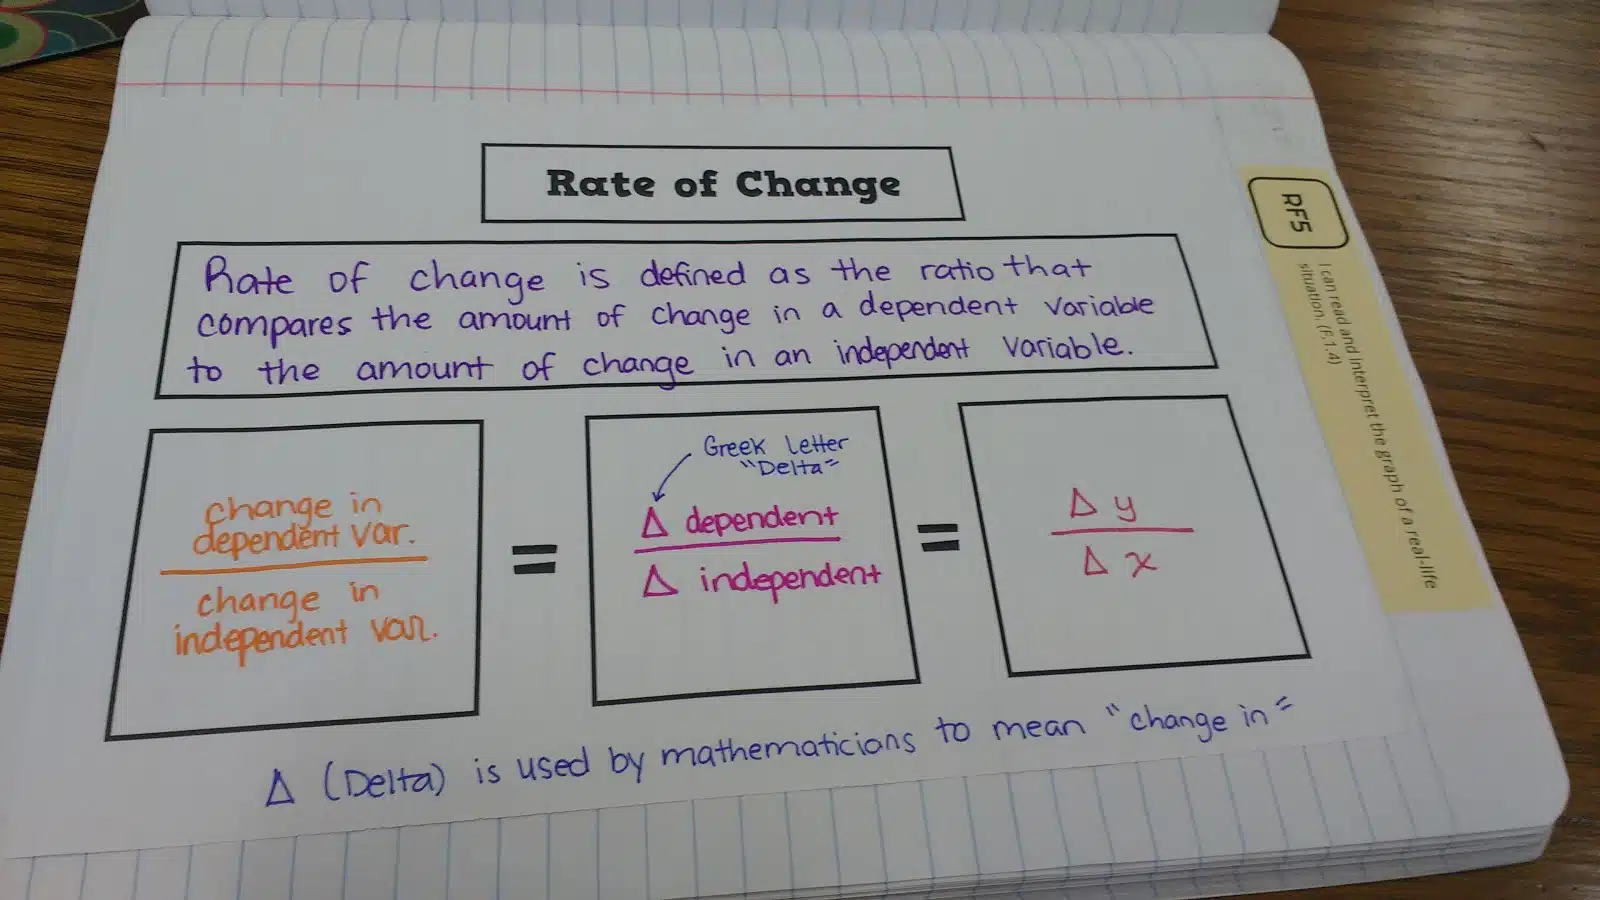 Rate of Change
Rate of change is defined as the ratio that
compares the amount of change in a dependent variable
to the amount of change in an independent variable.
change in
dependent var.
change in
independent var.
=
Greek Letter
"Delta"
Δ dependent
Δ independent
=
Δ y
Δ x
Δ (Delta) is used by mathematicians to mean "change in"
RF5
I can read and interpret the graph of a real-life
situation. (F.1.4)